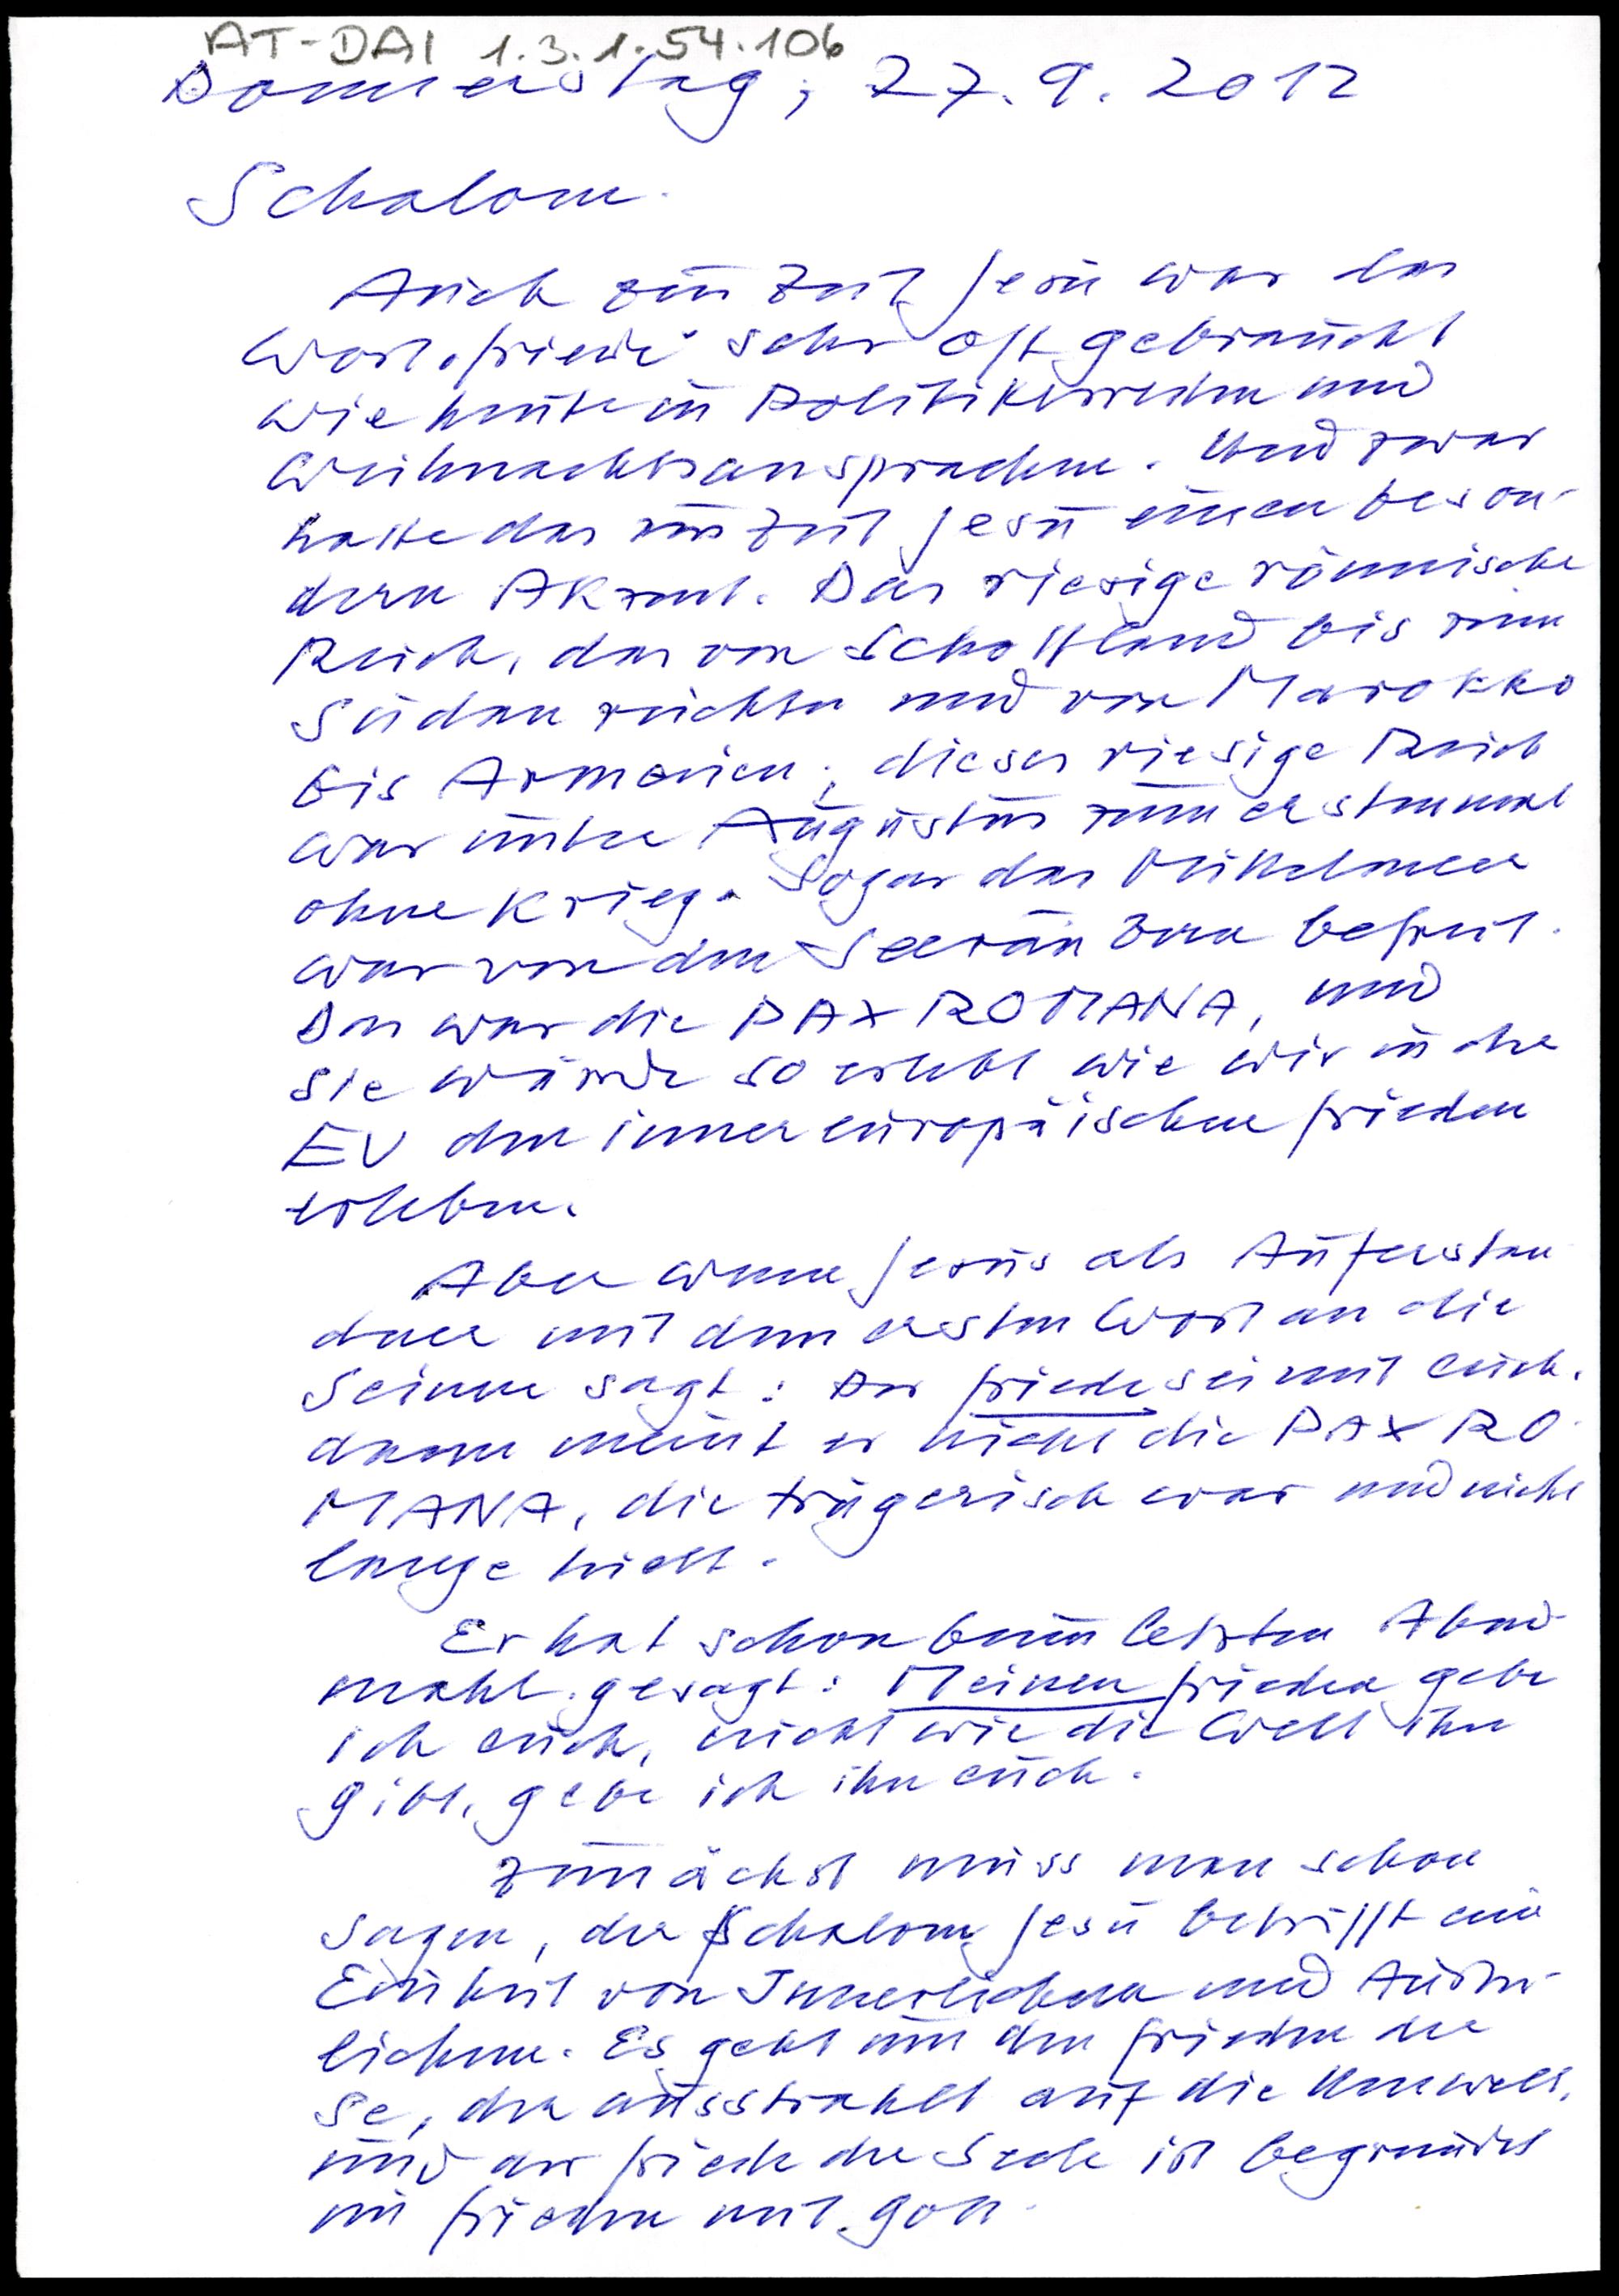 AT-DAI 1.3.1.54.106
Donnerstag, 27.9.2012
Schalom.
Auch zur Zeit Jesu war das
Wort „Friede" sehr oft gebraucht
wie heute in Politikerreden und
Weihnachtsansprachen. Und zwar
hatte das zur Zeit Jesu einen beson-
dern Akzent. Das riesige römische
Reich, das von Schottland bis zum
Sudan reichte und von Marokko
bis Armenien, dieses riesige Reich
war unter Augustus zum erstenmal
ohne Krieg. Sogar das Mittelmeer
war von den Seeräubern befreit.
Das war die PAX ROMANA, und
sie wurde so erlebt wie wir in der
EU den innereuropäischen Frieden
erleben.
Aber wenn Jesus als Auferstan
dener mit dem ersten Wort an die
Seinen sagt: Der Friede sei mit euch.
dann meint er nicht die PAX RO-
MANA, die trügerisch war und nicht
lange hielt.
Er hat schon beim letzten Abend-
mahl gesagt: Meinen Frieden gebe
ich euch, nicht wie die Welt ihn
gibt, gebe ich ihn euch.
Zunächst muss man schon
sagen, der Schalom Jesu betrifft eine
Einheit von Innerlichem und Äußer-
lichem. Es geht um den Frieden der
Se, der ausstrahlt auf die Umwelt,
und der Friede der Seele ist begründet
im Frieden mit Gott.